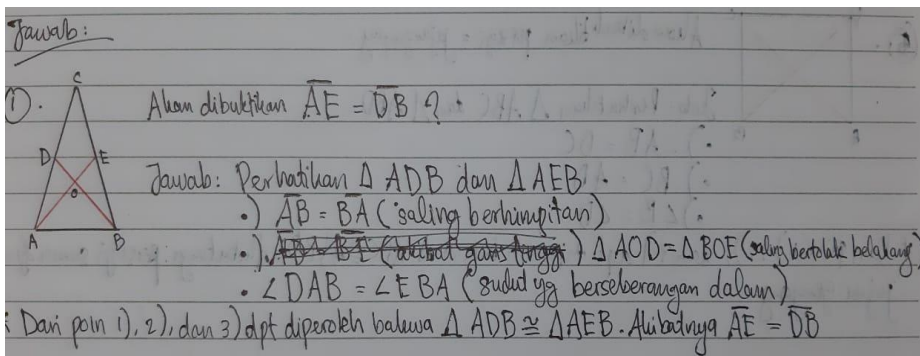 Jawab:
①. Akan dibuktikan AE = DB ?
C
D E
O
A B
Jawab: Perhatikan Δ ADB dan Δ AEB.
•) AB = BA (saling berhimpitan)
•) Δ AOD = Δ BOE (saling bertolak belakang)
• ∠DAB = ∠EBA (sudut yg berseberangan dalam)
: Dari poin 1), 2), dan 3) dpt diperoleh bahwa Δ ADB ≅ Δ AEB. Akibatnya AE = DB